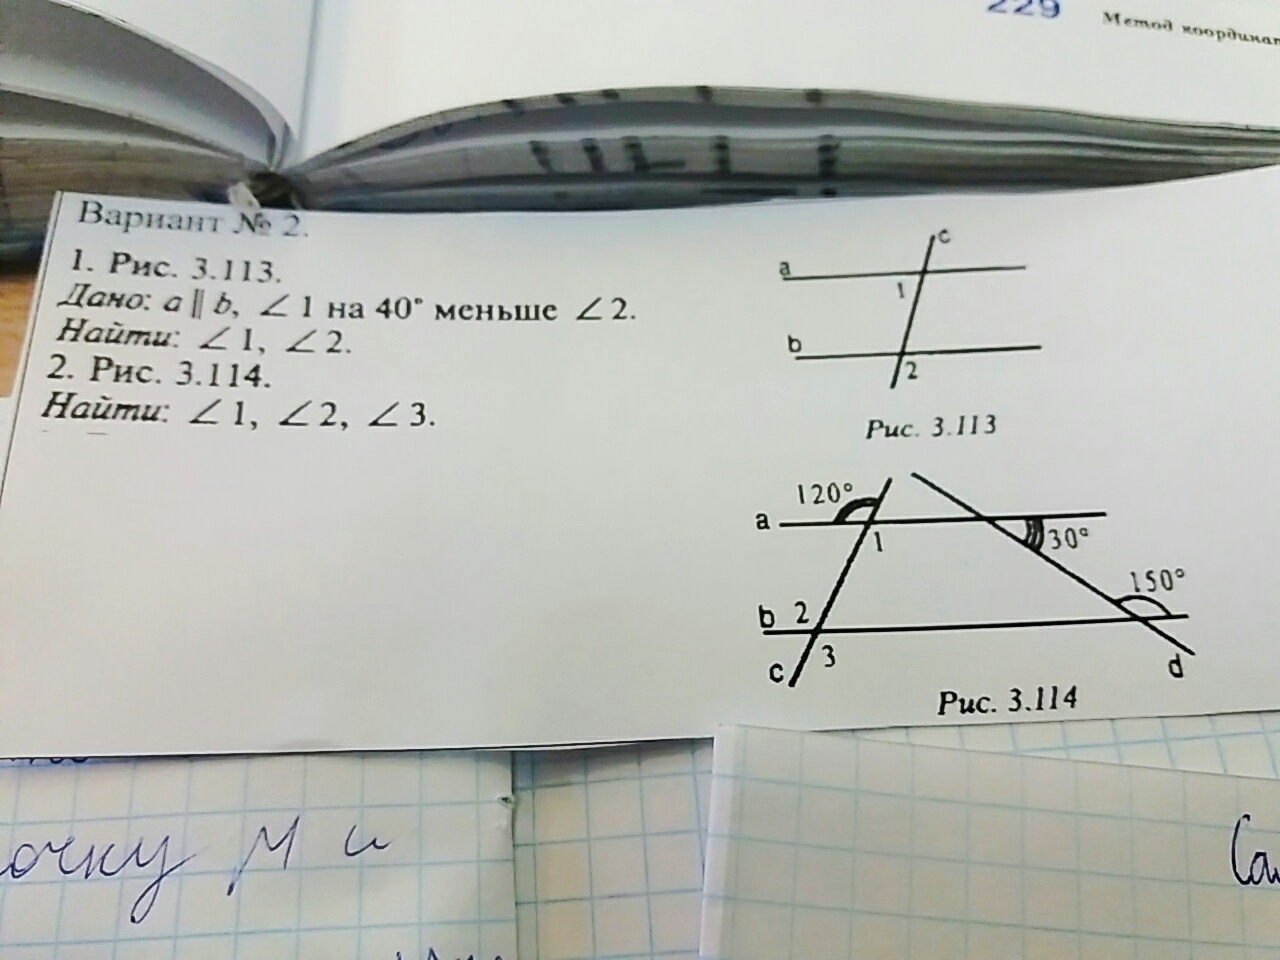 229 Метод координат
Вариант № 2.
1. Рис. 3.113.
Дано: a ∥ b, ∠ 1 на 40° меньше ∠ 2.
Найти: ∠ 1, ∠ 2.
2. Рис. 3.114.
Найти: ∠ 1, ∠ 2, ∠ 3.
c
a
1
b
2
Рис. 3.113
120°
a
1
30°
150°
b 2
3
c
d
Рис. 3.114
очку М и